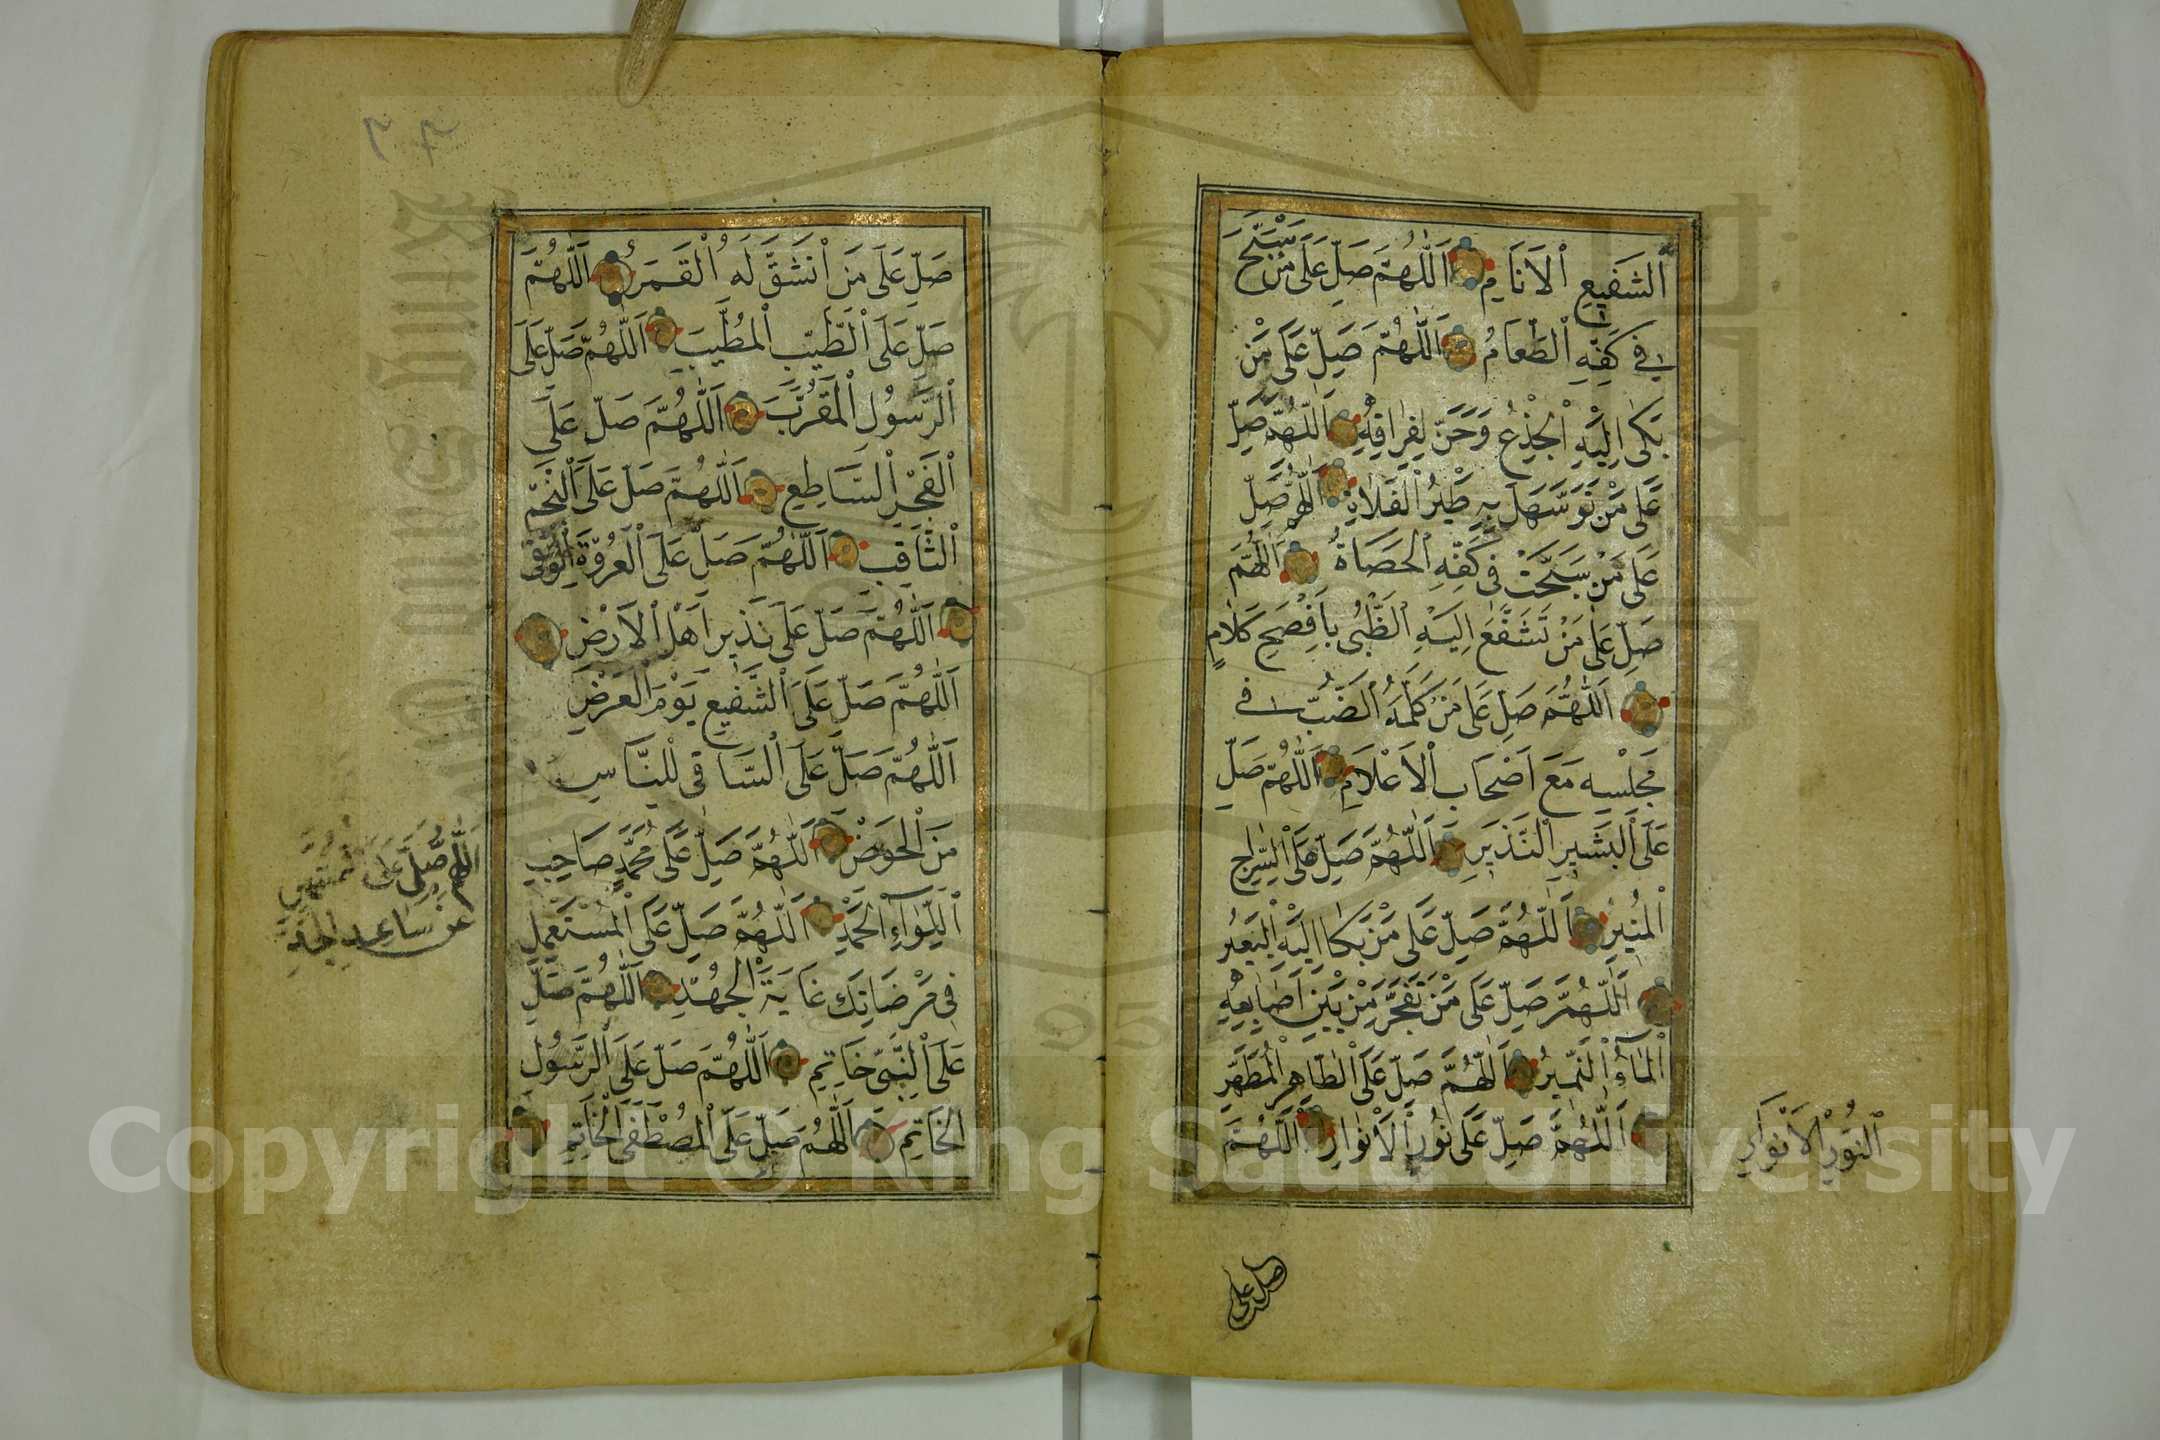 اَلشَّفِيعِ اْلاَنَامِ اَللّٰهُمَّ صَلِّ عَلَى مَنْ سَبَّحَ
فِي كَفِّهِ اْلطَّعَامُ اَللّٰهُمَّ صَلِّ عَلَى مَنْ
بَكٰى اِلَيْهِ اْلجِذْعُ وَحَنَّ لِفِرَاقِهِ اَللّٰهُمَّ صَلِّ
عَلَى مَنْ تَوَسَّهَلَ بِهِ طَيْرُ اْلفَلَاةِ اَللّٰهُمَّ صَلِّ
عَلَى مَنْ سَبَّحَتْ فِى كَفِّهِ اْلحَصَاةُ اَللّٰهُمَّ
صَلِّ عَلَى مَنْ تَشَفَّعَ اِلَيْهِ اْلظَّبْىُ بِاَفْصَحِ كَلَامٍ
اَللّٰهُمَّ صَلِّ عَلَى مَنْ كَلَّمَهُ اْلضَّبُّ فِي
مَجْلِسِهِ مَعَ اَصْحَابِ اْلاَعْلَامِ اَللّٰهُمَّ صَلِّ
عَلَى اْلبَشِيرِ اْلنَّذِيرِ اَللّٰهُمَّ صَلِّ عَلَى اْلسِّرَاجِ
اْلمُنِيرِ اَللّٰهُمَّ صَلِّ عَلَى مَنْ بَكَا اِلَيْهِ اْلبَعِيرُ
اَللّٰهُمَّ صَلِّ عَلَى مَنْ تَفَجَّرَ مِنْ بَيْنِ اَصَابِعِهِ
اْلمَآءُ اْلنَّمِيرُ اَللّٰهُمَّ صَلِّ عَلَى اْلطَّاهِرِ اْلمُطَهَّرِ
اَللّٰهُمَّ صَلِّ عَلَى نُورِ اْلاَنْوَارِ اَللّٰهُمَّ
اَلنُّورُ اْلاَنْوَارِ
صل على
صَلِّ عَلَى مَنِ اْنْشَقَّ لَهُ اْلقَمَرُ اَللّٰهُمَّ
صَلِّ عَلَى اْلطَّيِّبِ اْلمُطَيَّبِ اَللّٰهُمَّ صَلِّ عَلَى
اْلرَّسُولِ اْلمُقَرَّبِ اَللّٰهُمَّ صَلِّ عَلَى
اْلفَجْرِ اْلسَّاطِعِ اَللّٰهُمَّ صَلِّ عَلَى اْلنَّجْمِ
اْلثَّاقِبِ اَللّٰهُمَّ صَلِّ عَلَى اْلعُرْوَةِ اْلوُثْقٰى
اَللّٰهُمَّ صَلِّ عَلَى نَذِيرِ اَهْلِ اْلاَرْضِ
اَللّٰهُمَّ صَلِّ عَلَى اْلشَّفِيعِ يَوْمَ اْلعَرْضِ
اَللّٰهُمَّ صَلِّ عَلَى اْلسَّاقِى لِلنَّاسِ
مِنَ اْلحَوْضِ اَللّٰهُمَّ صَلِّ عَلَى مُحَمَّدٍ صَاحِبِ
اْللِّوَآءِ اْلحَمْدِ اَللّٰهُمَّ صَلِّ عَلَى اْلمُسْتَعْمِلِ
فِى مَرْضَاتِكَ غَايَةَ اْلجُهْدِ اَللّٰهُمَّ صَلِّ
عَلَى اْلنَّبِىِّ خَاتِمِ اَللّٰهُمَّ صَلِّ عَلَى اْلرَّسُولِ
الخَاتِمِ اَللّٰهُمَّ صَلِّ عَلَى اْلمُصْطَفَى اْلخَاتِمِ
اَللّٰهُمَّ صَلِّ عَلَى
عَنْ سَاعِدِ الجِدِّ
Copyright © King Saud University